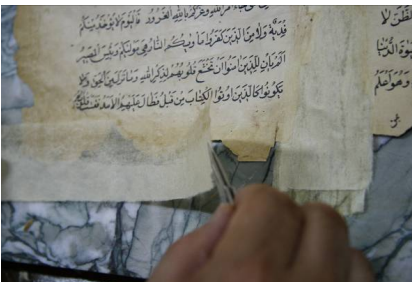 امر الله وغركم بالله الغرور فاليوم لا يؤخذ منكم
فدية ولا من الذين كفروا ماويكم النار هي موليكم وبئس المصير
الم يان للذين امنوا ان تخشع قلوبهم لذكر الله وما نزل من الحق ولا
يكونوا كالذين اوتوا الكتاب من قبل فطال عليهم الامد فقست
الظن لا
الدنيا
وهو اعلم